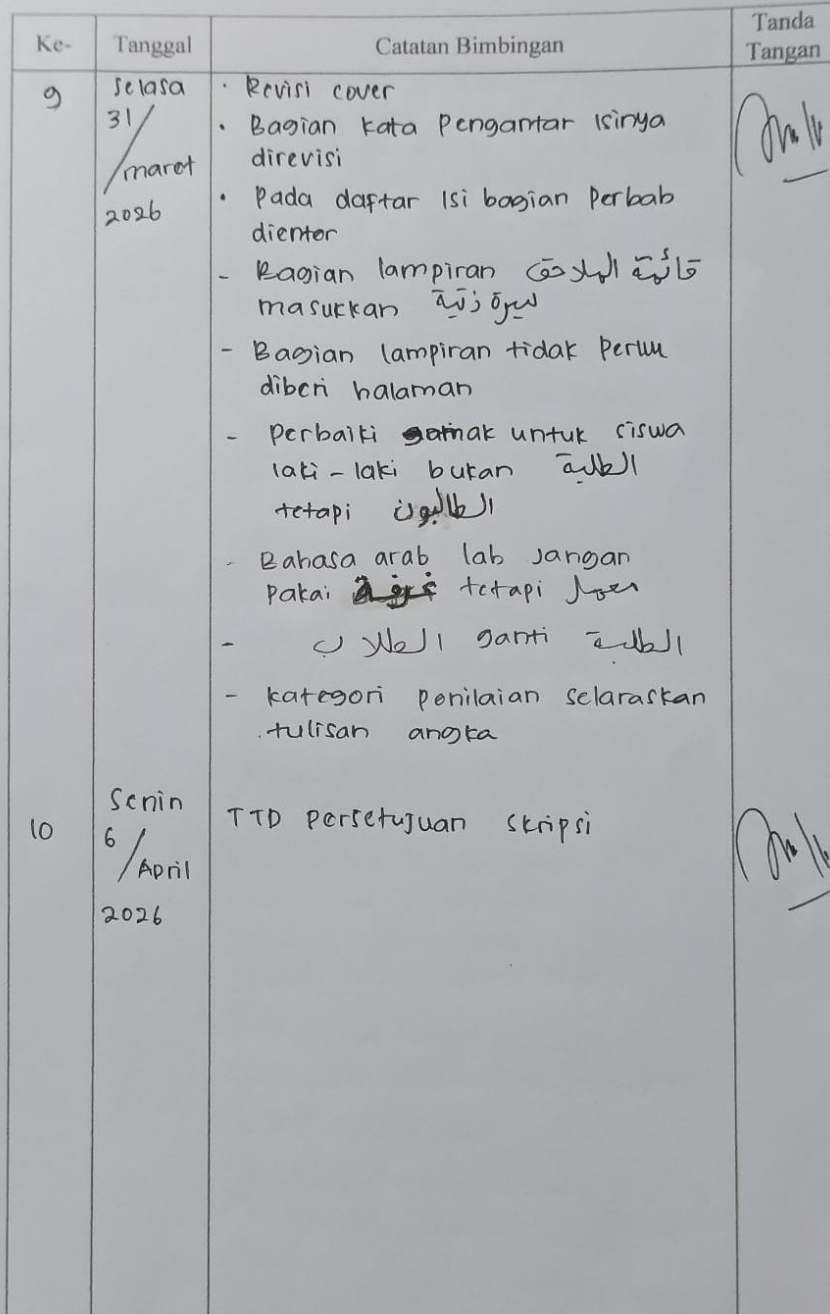 Ke- Tanggal Catatan Bimbingan Tanda Tangan
9 Selasa 31/maret 2026
• Revisi cover
• Bagian kata Pengantar isinya
direvisi
• Pada daftar isi bagian Perbab
dienter
- Bagian lampiran قائمة الملاحق
masukkan سيرة ذتية
- Bagian lampiran tidak Perlu
diberi halaman
- Perbaiki jamak untuk siswa
laki-laki bukan الطلبة
tetapi الطالبون
- Bahasa arab lab Jangan
Pakai غرفة tetapi معمل
- الطلاب ganti الطلبة
- kategori penilaian selaraskan
tulisan angka
10 Senin 6/April 2026
TTD Persetujuan Skripsi